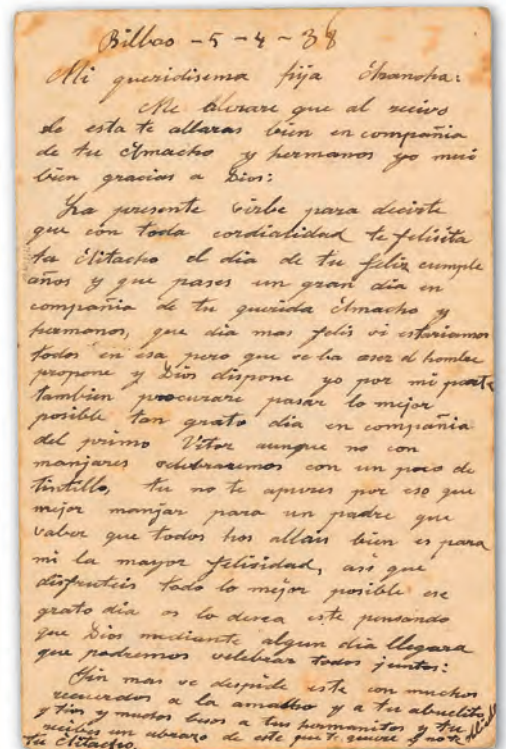 Bilbao - 5 - 4 - 38
Mi queridisema hija Arancha:
Me alegrare que al recivo
de esta te allaras bien en compañia
de tu Amacho y hermanos yo mui
bien gracias a Dios:
La presente sirbe para decirte
que con toda cordialidad te felisita
tu Aitacho el dia de tu feliz cumple
años y que pases un gran dia en
compañia de tu querida Amacho y
hermanos, que dia mas felis si estariamos
todos en esa pero que se ba aser el hombre
propone y Dios dispone yo por mi parte
tambien procurare pasar lo mejor
posible tan grato dia en compañia
del primo Vitor aunque no con
manjares selebraremos con un poco de
tintillo, tu no te apures por eso que
mejor manjar para un padre que
saber que todos hos allais bien es para
mi la mayor felisidad, asi que
disfruteis todo lo mejor posible ese
grato dia os lo desea este pensando
que Dios mediante algun dia llegara
que podremos selebrar todos juntos:
Sin mas se despide este con muchos
recuerdos a la amatxo y a tu abuelito
y tios y muchos besos a tus hermanitos y tu
recibes un abrazo de este que te quiere y no te olvida
tu Aitacho.